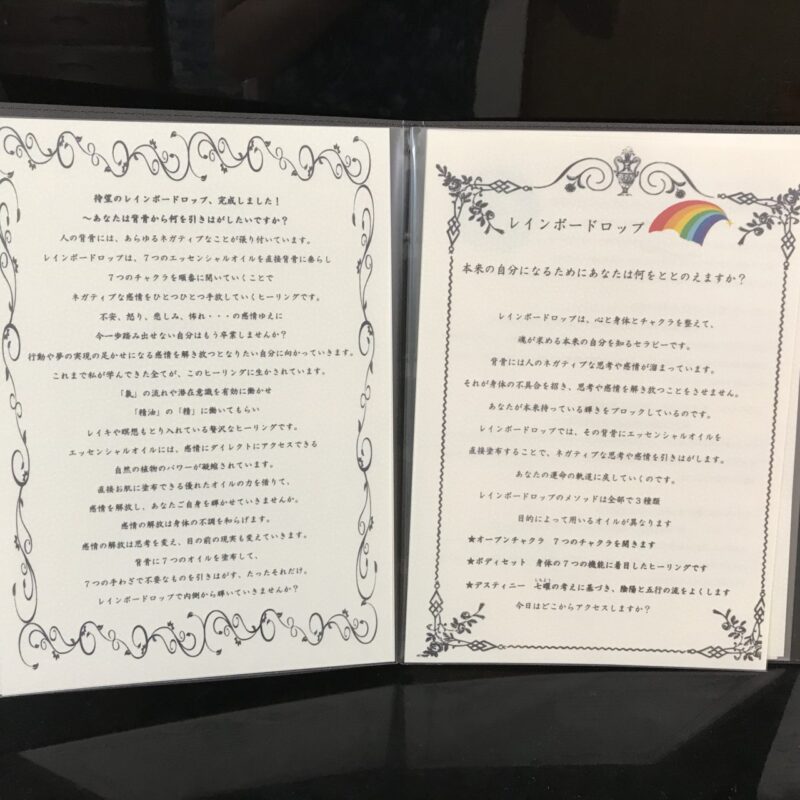 待望のレインボードロップ、完成しました！
～あなたは背骨から何を引きはがしたいですか？
人の背骨には、あらゆるネガティブなことが張り付いています。
レインボードロップは、７つのエッセンシャルオイルを直接背骨に垂らし
７つのチャクラを順番に開いていくことで
ネガティブな感情をひとつひとつ手放していくヒーリングです。
不安、怒り、悲しみ、怖れ・・・の感情ゆえに
今一歩踏み出せない自分はもう卒業しませんか？
行動や夢の実現の足かせになる感情を解き放つとなりたい自分に向かっていきます。
これまで私が学んできた全てが、このヒーリングに生かされています。
「氣」の流れや潜在意識を有効に働かせ
「精油」の「精」に働いてもらい
レイキや瞑想もとり入れている贅沢なヒーリングです。
エッセンシャルオイルには、感情にダイレクトにアクセスできる
自然の植物のパワーが凝縮されています。
直接お肌に塗布できる優れたオイルの力を借りて、
感情を解放し、あなたご自身を輝かせていきませんか。
感情の解放は身体の不調を和らげます。
感情の解放は思考を変え、目の前の現実も変えていきます。
背骨に７つのオイルを塗布して、
７つの手わざで不要なものを引きはがす、たったそれだけ。
レインボードロップで内側から輝いていきませんか？
レインボードロップ
本来の自分になるためにあなたは何をととのえますか？
レインボードロップは、心と身体とチャクラを整えて、
魂が求める本来の自分を知るセラピーです。
背骨には人のネガティブな思考や感情が溜まっています。
それが身体の不具合を招き、思考や感情を解き放つことをさせません。
あなたが本来持っている輝きをブロックしているのです。
レインボードロップでは、その背骨にエッセンシャルオイルを
直接塗布することで、ネガティブな思考や感情を引きはがします。
あなたの運命の軌道に戻していくのです。
レインボードロップのメソッドは全部で３種類
目的によって用いるオイルが異なります
★オープンチャクラ　７つのチャクラを開きます
★ボディセット　身体の７つの機能に着目したヒーリングです
★デスティニー　七曜の考えに基づき、陰陽と五行の流をよくします
今日はどこからアクセスしますか？